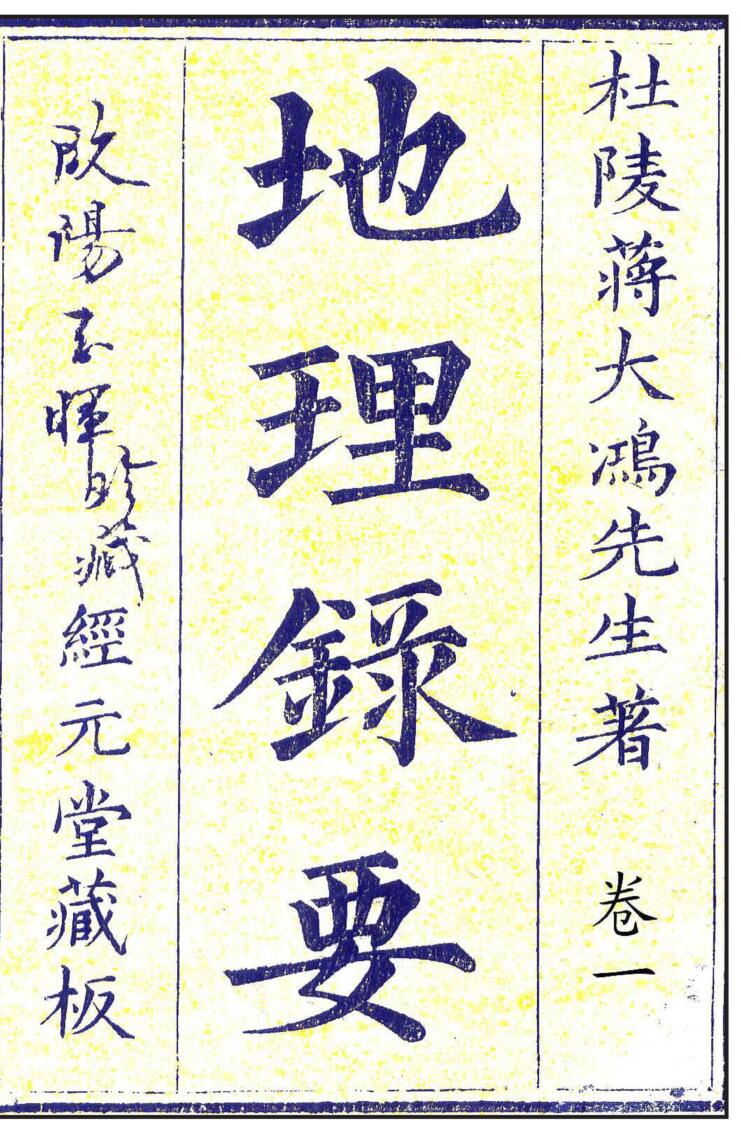 杜陵蔣大鴻先生著 卷一
地理錄要
欧陽玉暉珍藏
經元堂藏板